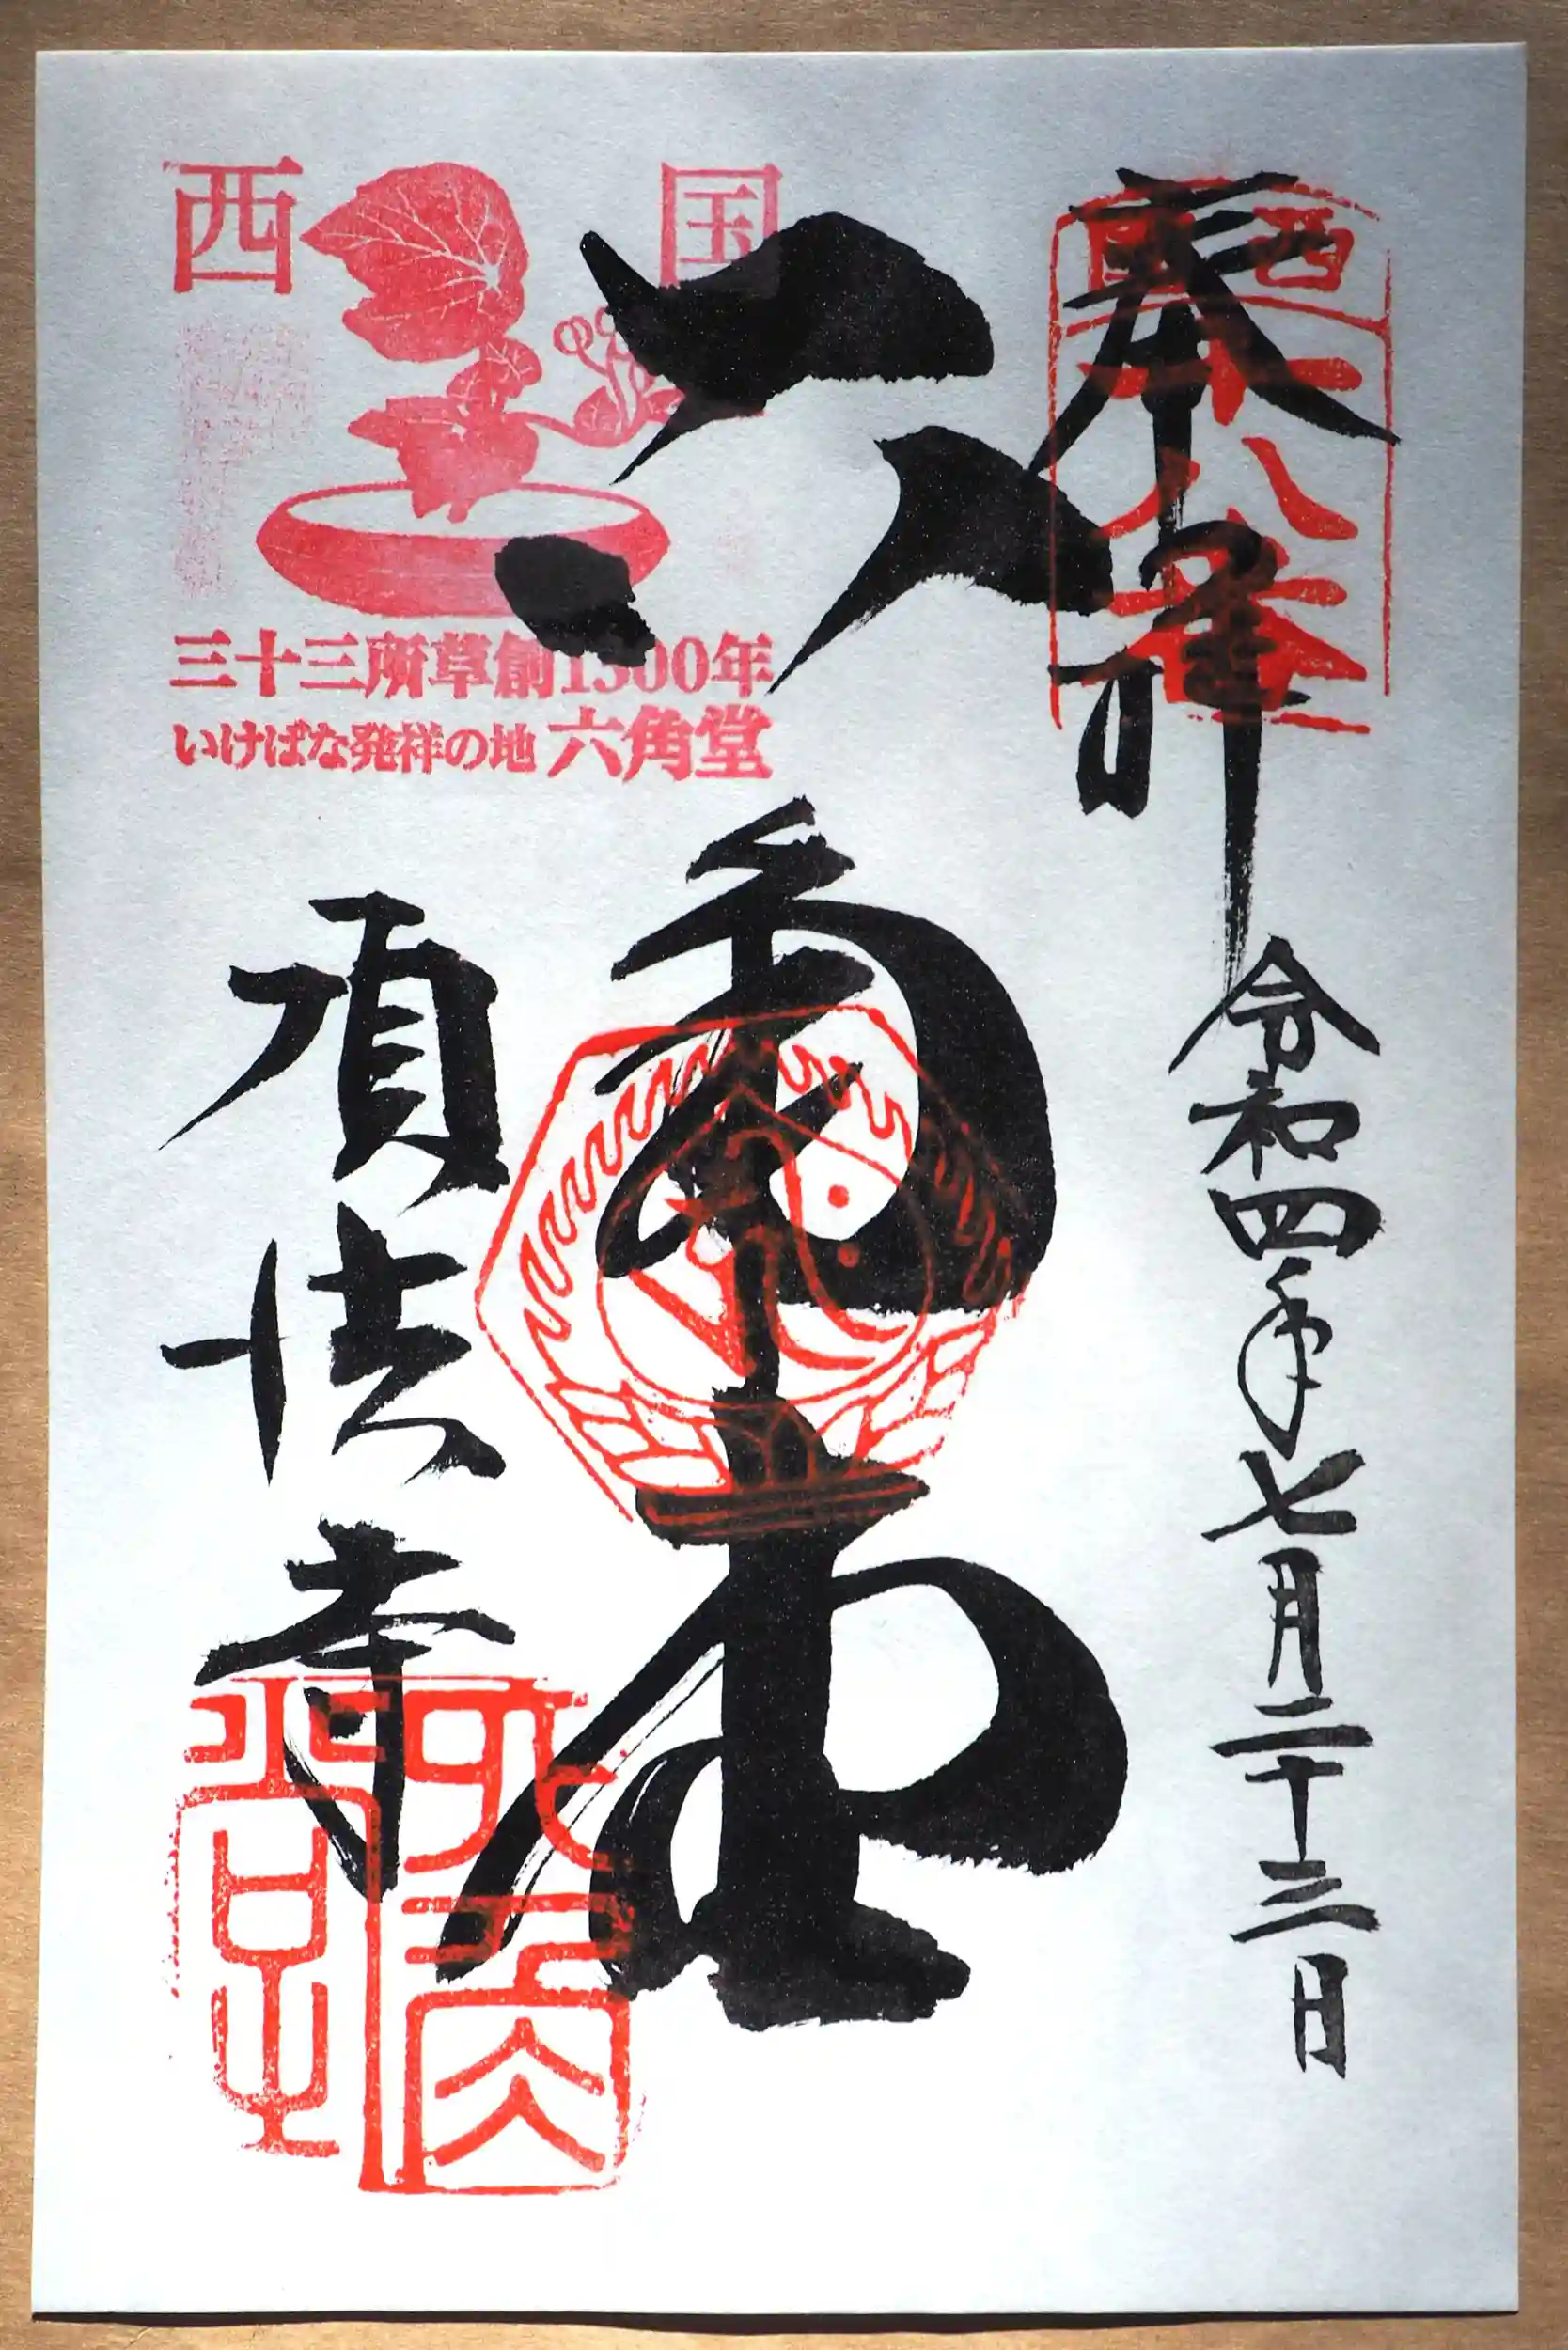 奉拝
西國
十八番
令和四年七月二十三日
六角堂
西国
三十三所草創1300年
いけばな発祥の地 六角堂
頂法寺